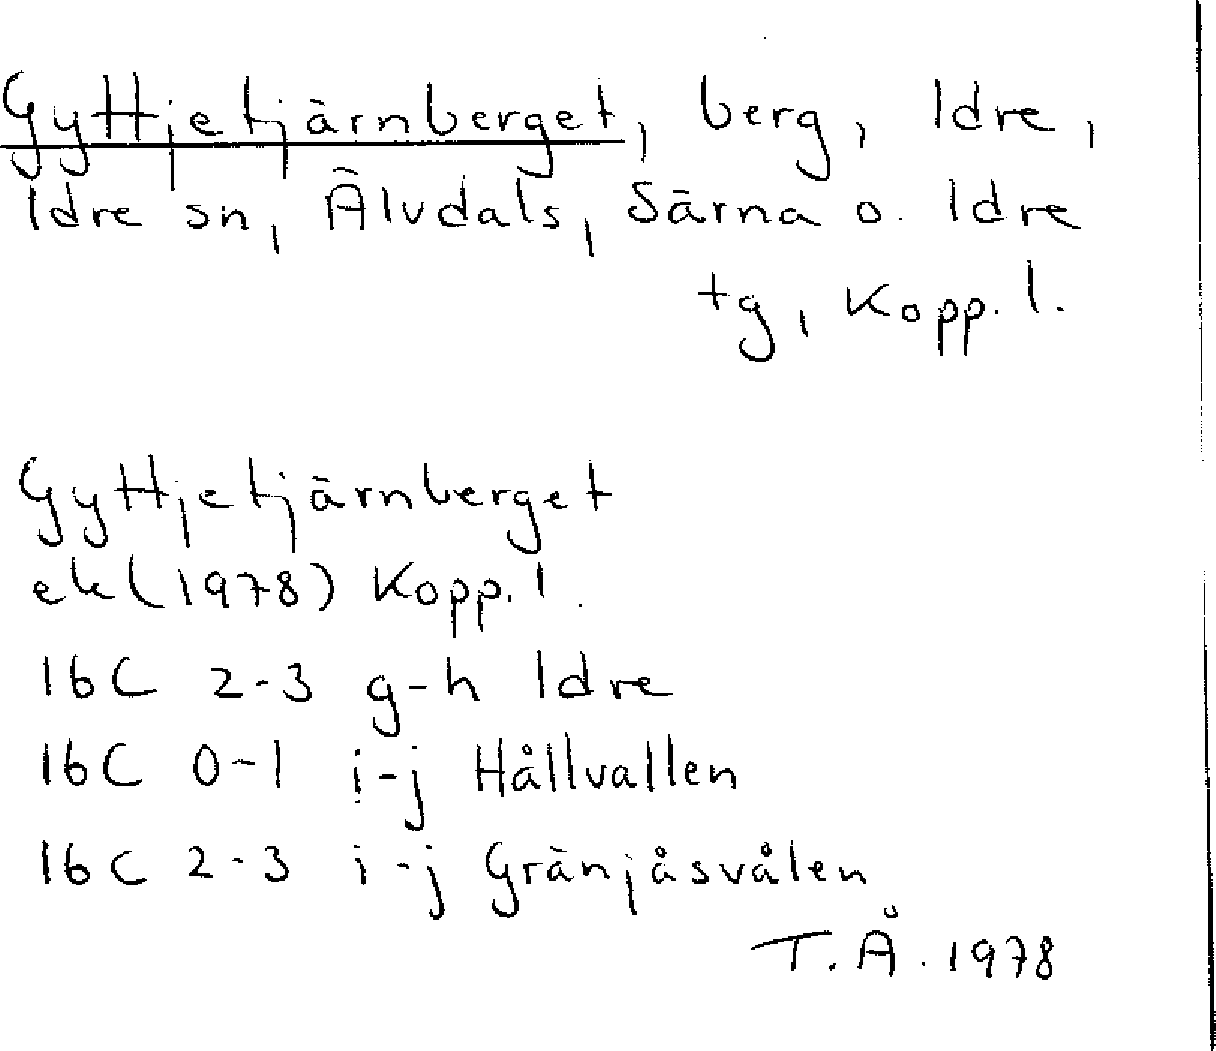 Gyttjetjärnberget, berg, Idre,
Idre sn, Älvdals, Särna o. Idre
tg, Kopp. l.
Gyttjetjärnberget
ek (1978) Kopp. l.
16C 2-3 g-h Idre
16C 0-1 i-j Hållvallen
16C 2-3 i-j Gränjåsvålen
T.Å. 1978